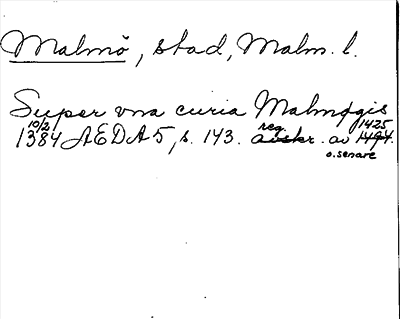 Malmö, stad, Malm. l.
Super vna curia Malmøgis
10/2 1384 AEDA 5, s. 143. reg. av 1425
o. senare